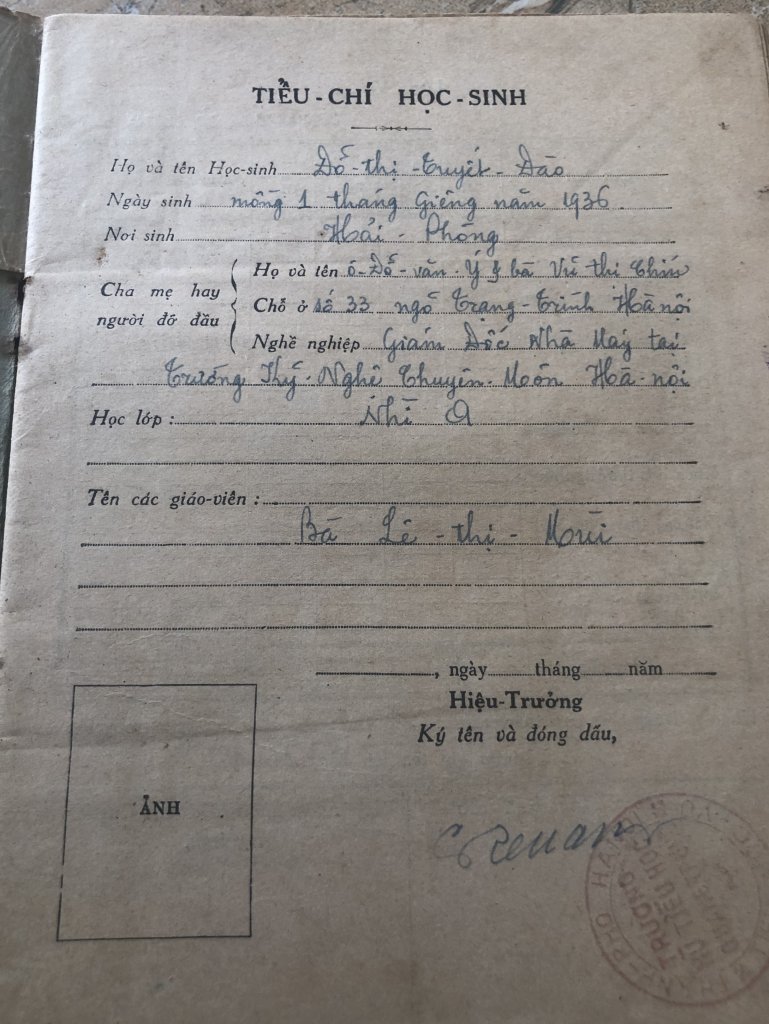 TIỂU-CHÍ HỌC-SINH
Họ và tên Học-sinh Đỗ-thị-Tuyết-Đào
Ngày sinh mồng 1 tháng Giêng năm 1936.
Nơi sinh Hải-Phòng
Cha mẹ hay người đỡ đầu
Họ và tên ô-Đỗ-văn-Ý & bà Vũ thị Thìn
Chỗ ở số 33 ngõ Trạng-Trình Hà nội
Nghề nghiệp Giám Đốc Nhà Máy tại
Trường Kỹ-Nghệ Chuyên-Môn Hà-nội
Học lớp : Nhì A
Tên các giáo-viên :
Bà Lê-thị-Mùi
, ngày tháng năm
Hiệu-Trưởng
Ký tên và đóng dấu,
ẢNH
TRƯỜNG
NỮ TIỂU HỌC